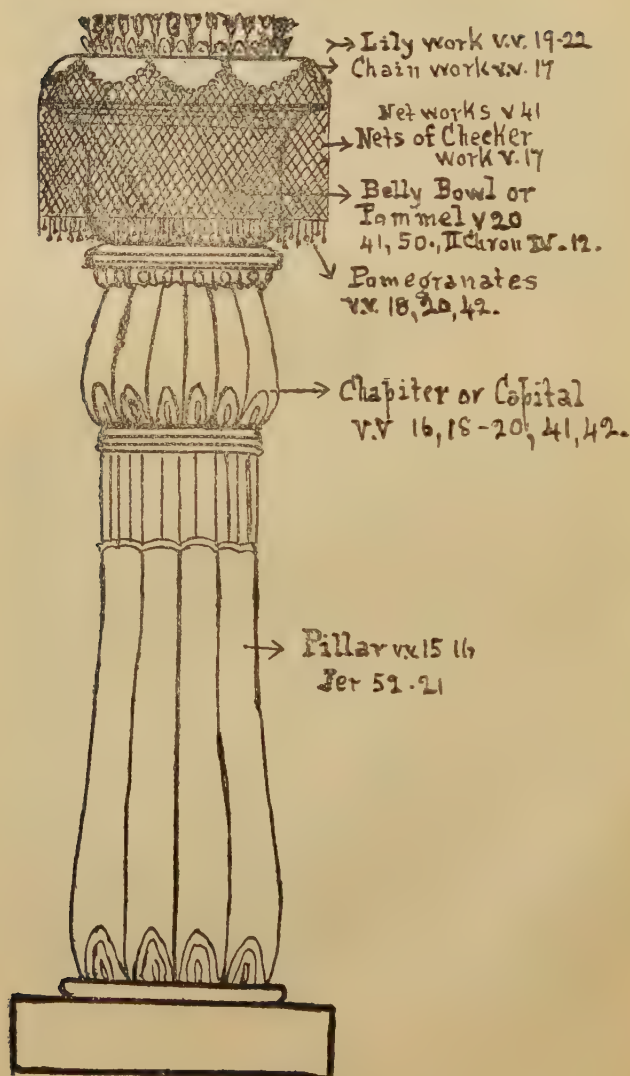 Lily work v.v. 19-22
Chain work v.v. 17
Net works v 41
Nets of Checker
work v. 17
Belly Bowl or
Pammel v 20
41, 50., II Chron IV. 12.
Pomegranates
v.v. 18, 20, 42.
Chapiter or Capital
v.v 16, 18-20, 41, 42.
Pillar v.v. 15 16
Jer 52-21